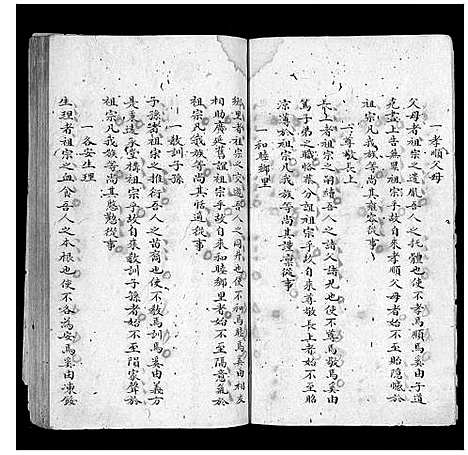 一孝順父母
父母者祖宗之遺胤吾人之托體也使不孝焉順焉奚由子道
克盡上告無罪祖宗乎故自來孝順父母者始不至貽隱憾於
祖宗凡我族等尚其雍容從事
一尊敬長上
長上者祖宗之嗣續吾人之諸父諸兄也使不尊焉敬焉奚由
篤子弟之職恪奉分誼祖宗乎故自來尊敬長上者始不至貽
涼薄於祖宗凡我族等尚其謹凜從事
一和睦鄉里
鄉里者祖宗之交遊吾人之同井也使不和焉睦焉奚由相友
相助廣延舊誼祖宗乎故自來和睦鄉里者始不至隔意氣於
祖宗凡我族等尚其恬道從事
一教訓子孫
子孫者祖宗之推衍吾人之苗裔也使不教焉訓焉奚由義方
是克遠承堂構祖宗乎故自來教訓子孫者始不至隕家聲於
祖宗凡我族等尚其懇懃從事
一各安生理
生理者祖宗之血食吾人之本根也使不各為安焉奚由凍餒